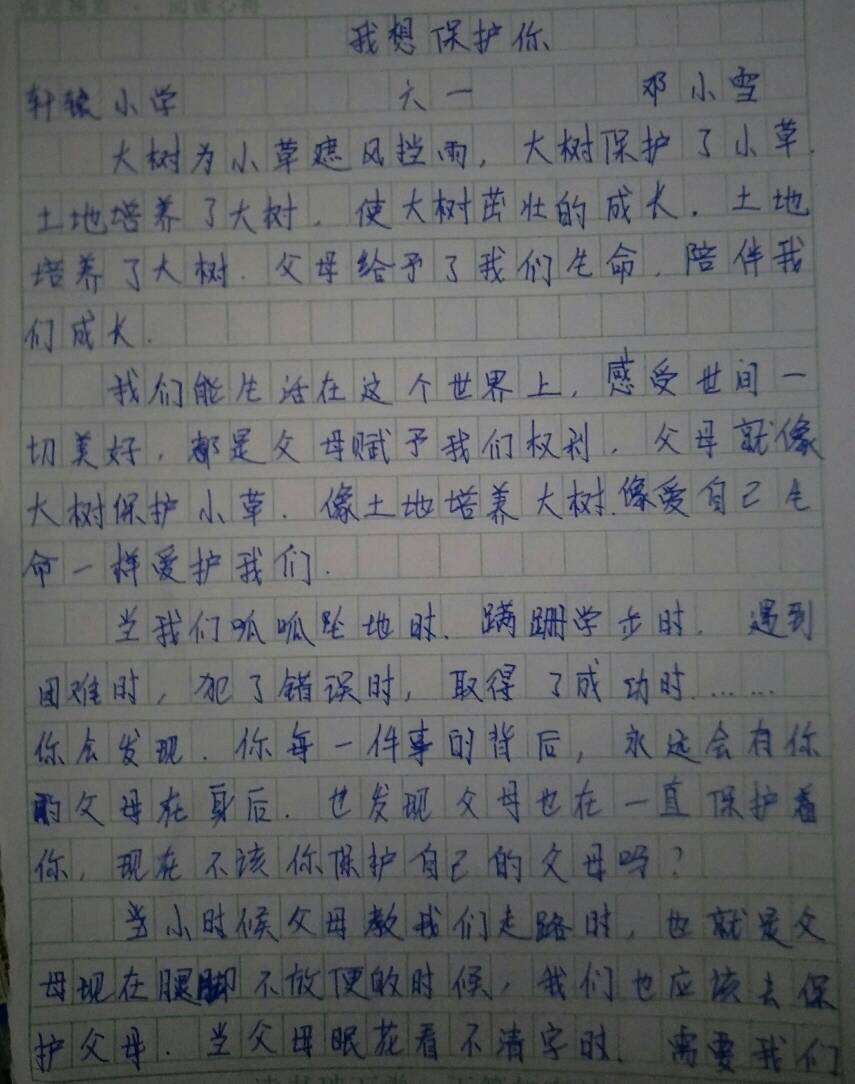 我想保护你
轩辕小学 六一 邓小雪
大树为小草遮风挡雨，大树保护了小草.
土地培养了大树.使大树茁壮的成长.土地
培养了大树.父母给予了我们生命.陪伴我
们成长.
我们能生活在这个世界上.感受世间一
切美好,都是父母赋予我们权利.父母就像
大树保护小草.像土地培养大树.像爱自己生
命一样爱护我们.
当我们呱呱坠地时.蹒跚学步时.遇到
困难时,犯了错误时,取得了成功时......
你会发现.你每一件事的背后,永远会有你
的父母在身后.也发现父母也在一直保护着
你,现在不该你保护自己的父母吗?
当小时候父母教我们走路时,也就是父
母现在腿脚不放便的时候,我们也应该去保
护父母.当父母眠花看不清字时.需要我们